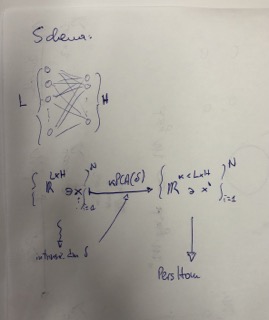 Schema:
L H
{ ℝ^{L×H} ∋ x_i }_{i=1}^N kPCA(δ) { ℝ^{k<L×H} ∋ x^i }_{i=1}^N
intrinsic dim δ
PersHom